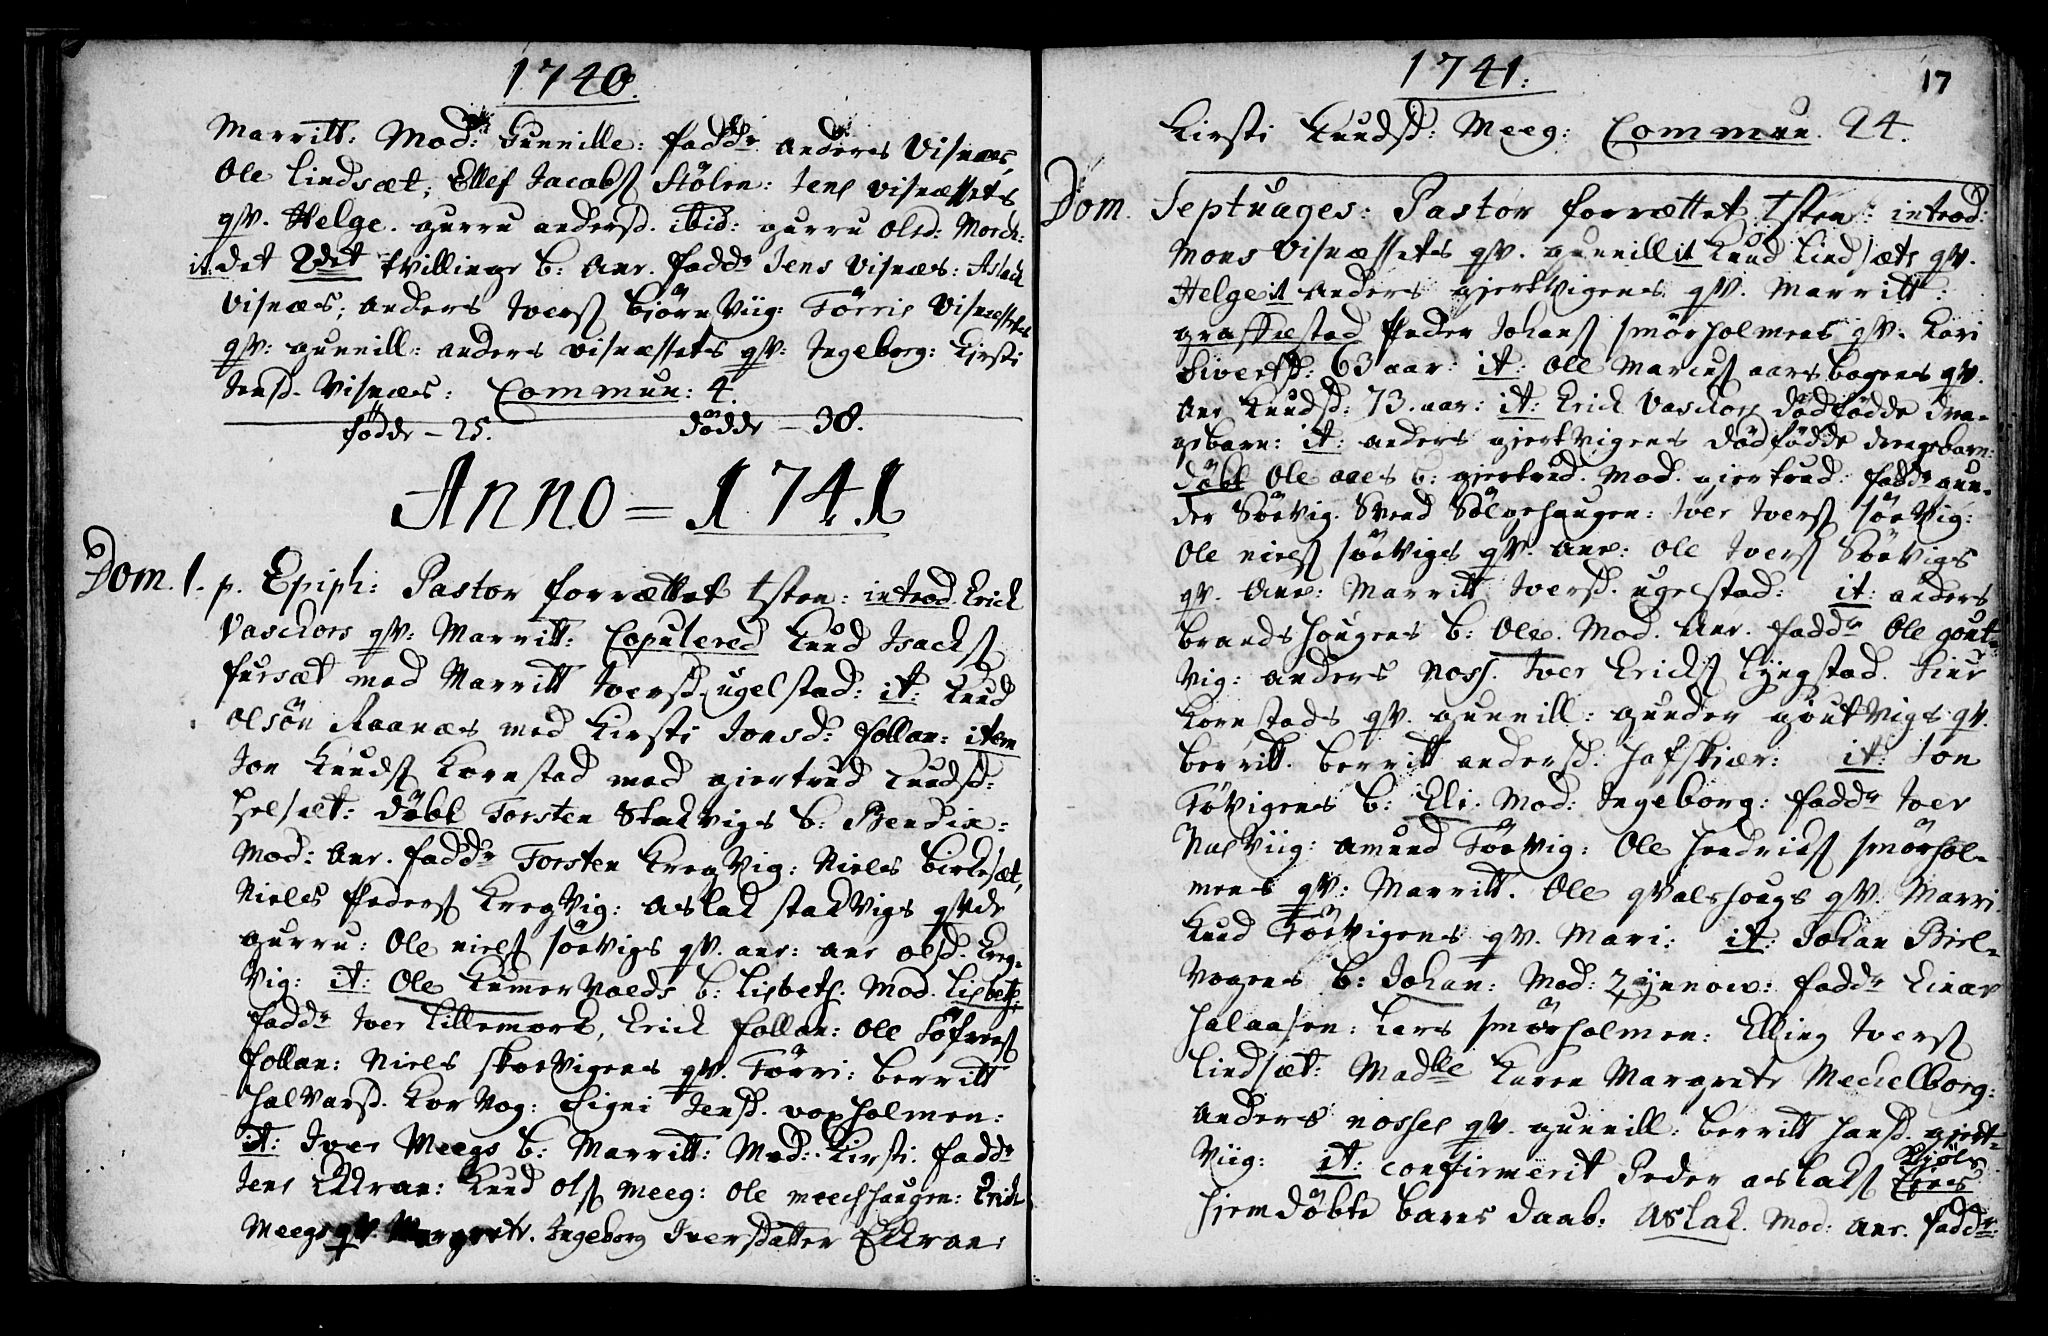 1740.
Marritt: Mod: Gunnille: fadd: anders Visnæs,
Ole Lindsæt; Ellef Jacobs Stölen: Jens Visnæssets
qv. Helge. gurru andersd. ibid: gurru Olsd: Morch:
it: det 2det tvillinge b: Ane. fadd: Jens Visnæs: Aslach
Visnæs; anders Ivers Biörnviig: Törris Visnæssets
qv: gunnill: anders Visnæssets qv: Ingeborg: Kirsti
Jensd. Visnæs: Commun: 4.
födde - 25. dödde - 38.
Anno = 1741
Dom. 1. p. Epiph: Pastor forrættet tsten: introd. Erick
Vaschors qv: Marritt: Copulered Knud Isachs
fursæt med Marritt Iversd. ugelstad: it: Knud
olsön Raanæs med Kirsti Jonsd: follan: item
Jon Knuds Kornstad med giertrud Knudsd:
helsæt: döbt Torsten Stakvigs b: Bendix:
Mod: Ane. fadd: Torsten Kregvig: Niels birkesæt,
Niels Peders Kregvig: Aslak stakvigs qvde
gurru: Ole niels söevigs qv. ane: ane olsd. Kreg-
vig: it: Ole Kumervolds b: Lisbeth. Mod. Lisbeth:
fadd: Iver Lillemork, Erick follan: Ole Töfres
follan: Niels skorvigens qv. Törri: berritt
halvarsd. Korvog: Signi Jensd. voxholmen:
it: Iver Meegs b: Marritt: Mod: Kirsti. fadd:
Jens Ekran: Knud Ols Meeg: Ole meechhaugen: Erich
Meegs qv. Margrete. Ingeborg Iversdatter Ekran:
1741:
17
Kirsti Knudsd: Meeg: Commun. 24.
Dom. Septuages: Pastor forrættet tsten: introd:
Mons Visnæssets qv. gunnill it Knud Lindsæts qv.
Helge it Anders gjertvigens qv. Marritt:
graffæstad Peder Johans smörholmens qv. Kari
Siversd: 63 aar: it: Ole Marcus aarsbogens qv.
Ane Knudsd: 73. aar: it: Erick Vaschors dödfödde dren-
gebarn: it: anders gjertvigens dödfödde drengebarn:
döbt Ole aaes b: gjertrud. Mod. giertrud: fadd: gun-
der Söevig. Svend Sölgehaugen: Iver Ivers söevig:
Ole niels söevigs qv. ane: ole Ivers Söevigs
qv. Ane: Marritt Iversd. ugelstad: it: anders
brandshougens b: Ole. Mod. Ane. fadd: Ole gout-
vig: anders Noss. Iver Ericks Lyngstad. Siur
Kornstads qv. gunnill: gunder goutvigs qv.
berritt. berritt andersd. hafskiær: it: Jon
Tövigens b: Eli. Mod: Ingeborg: fadd: Iver
Nasviig: amund Töevig: Ole hendrichs smörhol-
mens qv: Marritt. Ole qvalshougs qv. Marri.
Knud Töevigens qv. Mari: it: Johan Biel-
vogens b: Johan: Mod: Zynnow: fadd: Einar
halaasen: Lars smörholmen: Elling Ivers
Lindsæt: Madlle Karen Margrete Mechelborg:
anders nosses qv. gunnill: berritt hansd. giedt-
viig: it: confirmerit Peder aslaks Lies
hjemdöbte barns daab. Aslak. Mod: Ane. fadd: